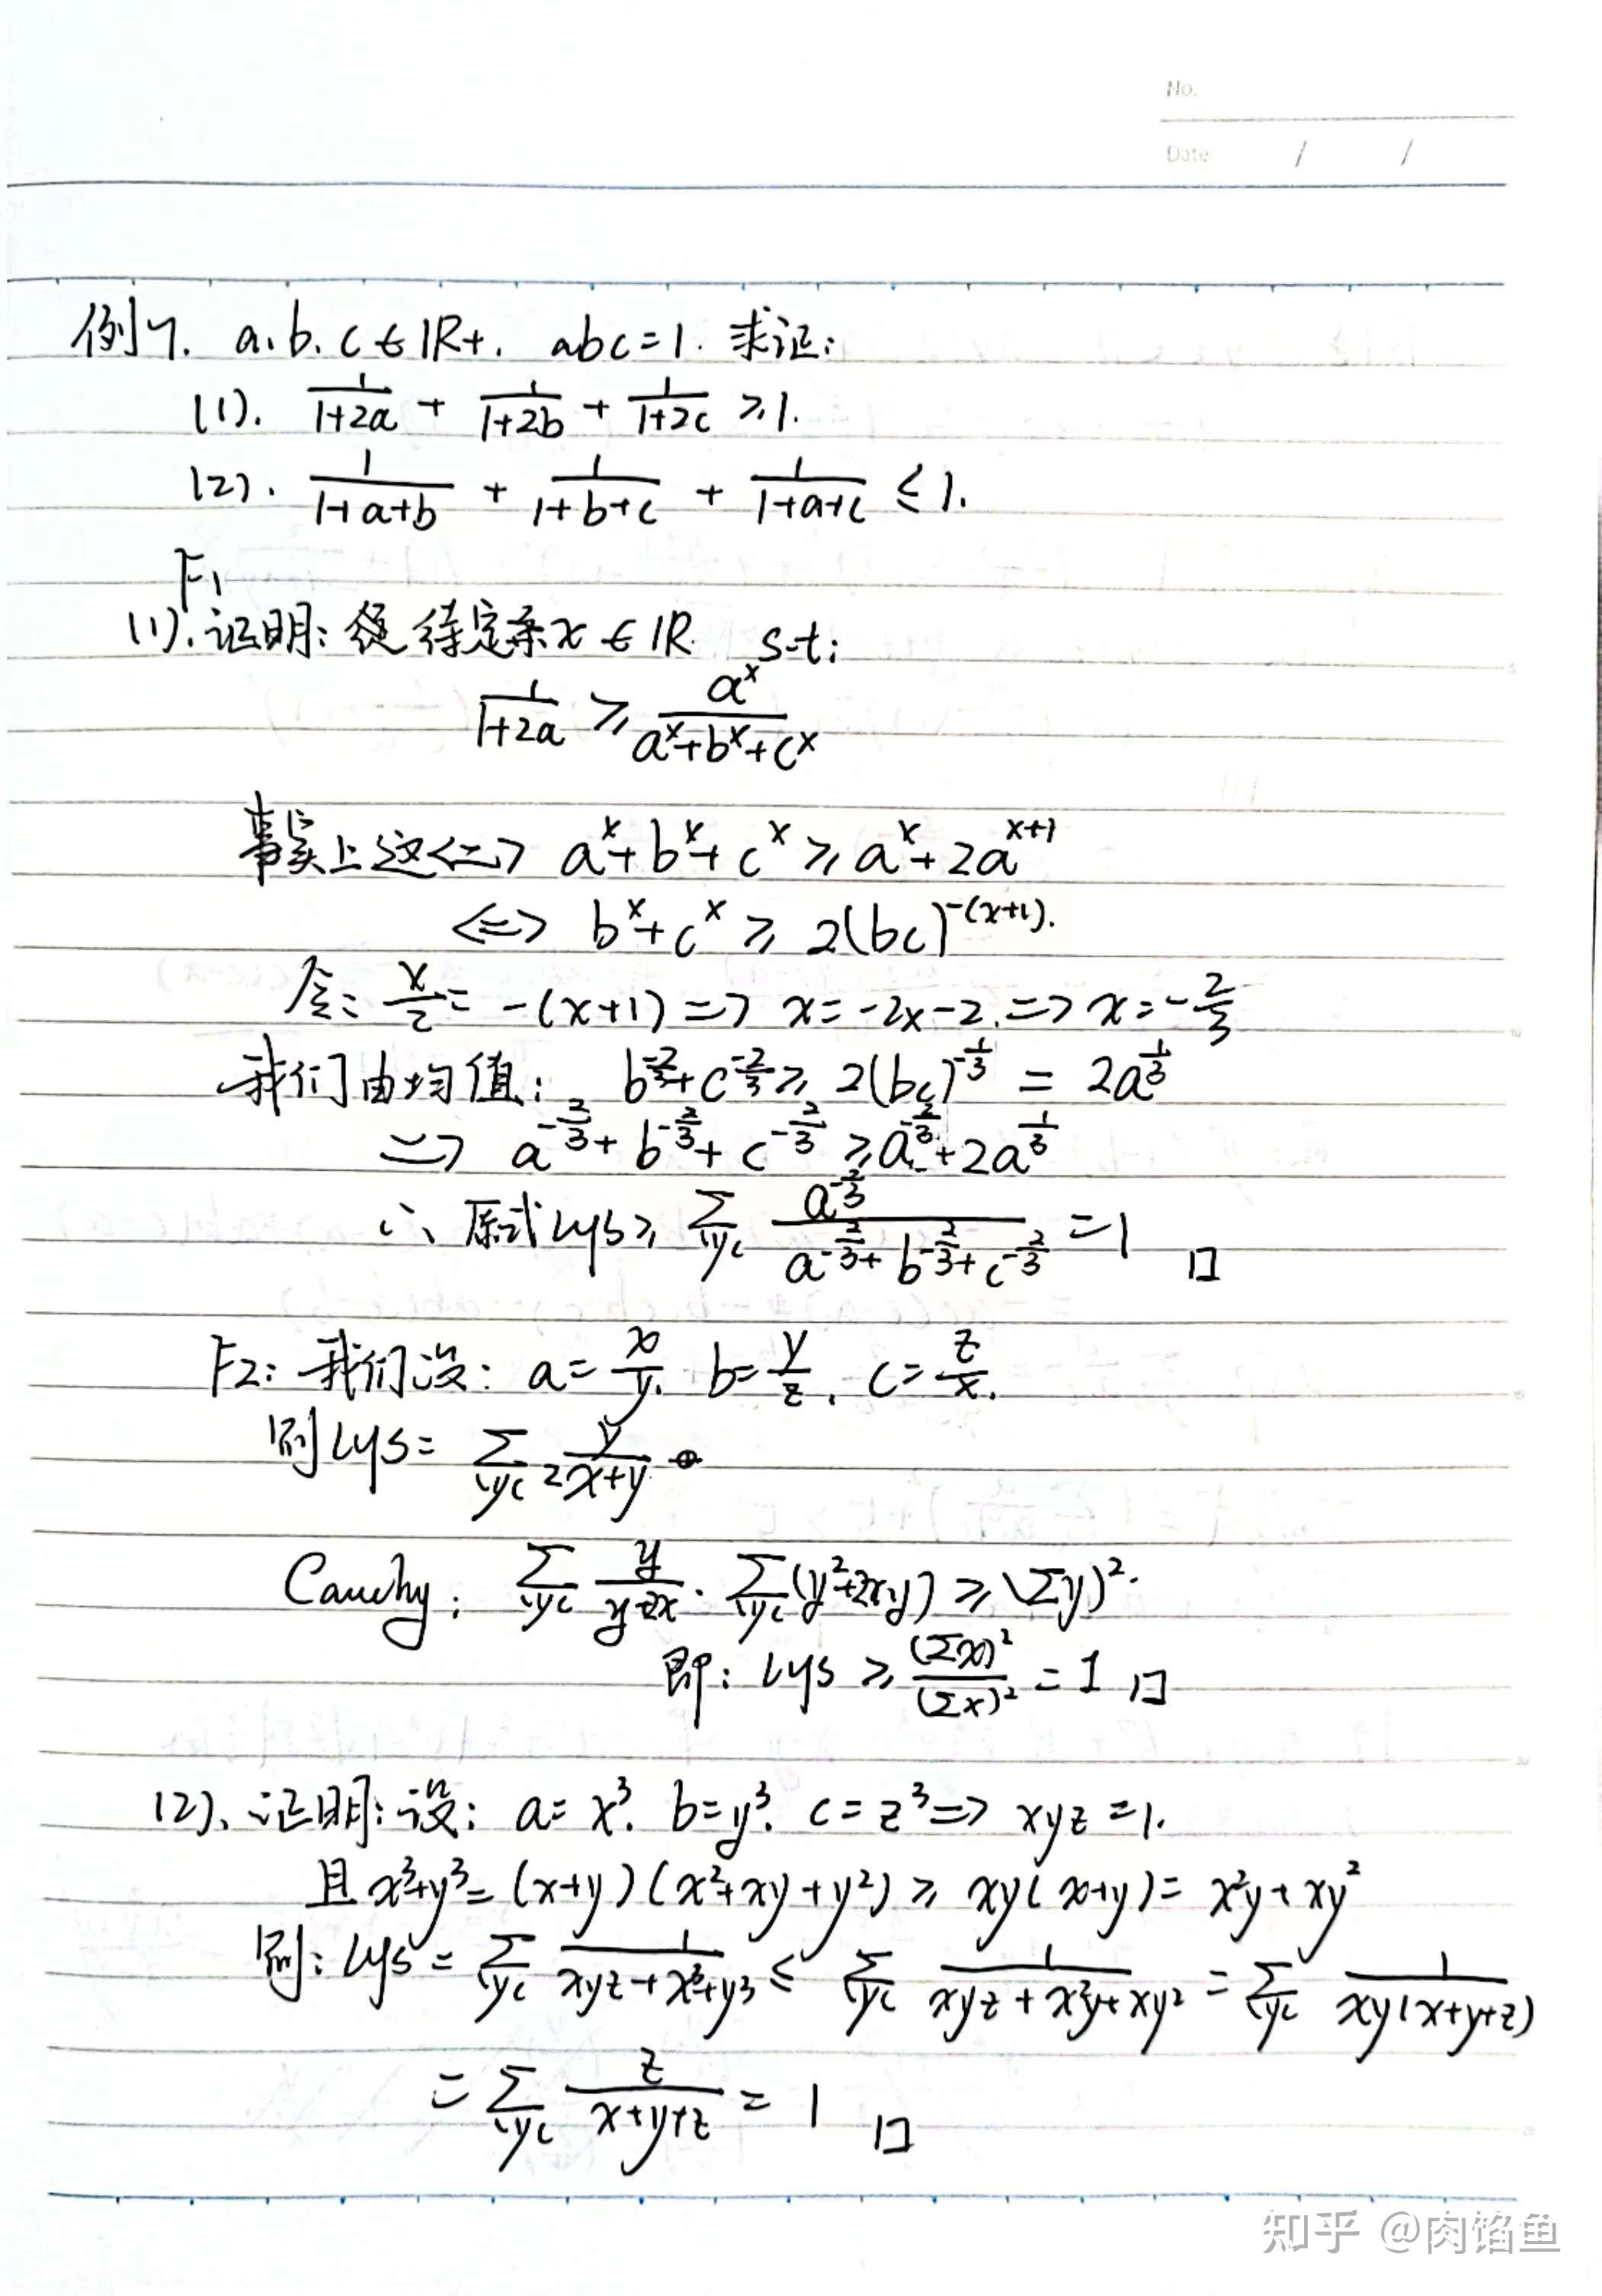 No.
Date / /
例7. a、b、c∈ℝ+. abc=1. 求证:
(1). 1/(1+2a) + 1/(1+2b) + 1/(1+2c) ≥ 1.
(2). 1/(1+a+b) + 1/(1+b+c) + 1/(1+a+c) ≤ 1.
F1
(1). 证明: 待定系x∈ℝ s.t:
1/(1+2a) ≥ a^x/(a^x+b^x+c^x)
事实上这<=> a^x+b^x+c^x ≥ a^x+2a^(x+1)
<=> b^x+c^x ≥ 2(bc)^(-(x+1)).
令: x/2 = -(x+1) => x=-2x-2. => x=-2/3
我们由均值: b^(-2/3)+c^(-2/3) ≥ 2(bc)^(-1/3) = 2a^(1/3)
=> a^(-2/3)+b^(-2/3)+c^(-2/3) ≥ a^(-2/3)+2a^(1/3)
∴ 原式Lys ≥ Σ_cyc a^(-2/3)/(a^(-2/3)+b^(-2/3)+c^(-2/3)) = 1 □
F2: 我们设: a=x/y. b=y/z. c=z/x.
则Lys= Σ_cyc y/(2x+y)
Cauchy: Σ_cyc y/(y+2x) · Σ_cyc(y²+2xy) ≥ (Σy)².
即: Lys ≥ (Σx)²/(Σx)² = 1 □
(2). 证明: 设: a=x³. b=y³. c=z³ => xyz=1.
且x³+y³=(x+y)(x²+xy+y²) ≥ xy(x+y)= x²y+xy²
则: Lys = Σ_cyc 1/(xyz+x³+y³) ≤ Σ_cyc 1/(xyz+x²y+xy²) = Σ_cyc 1/(xy(x+y+z))
= Σ_cyc z/(x+y+z) = 1 □
知乎 @肉馅鱼